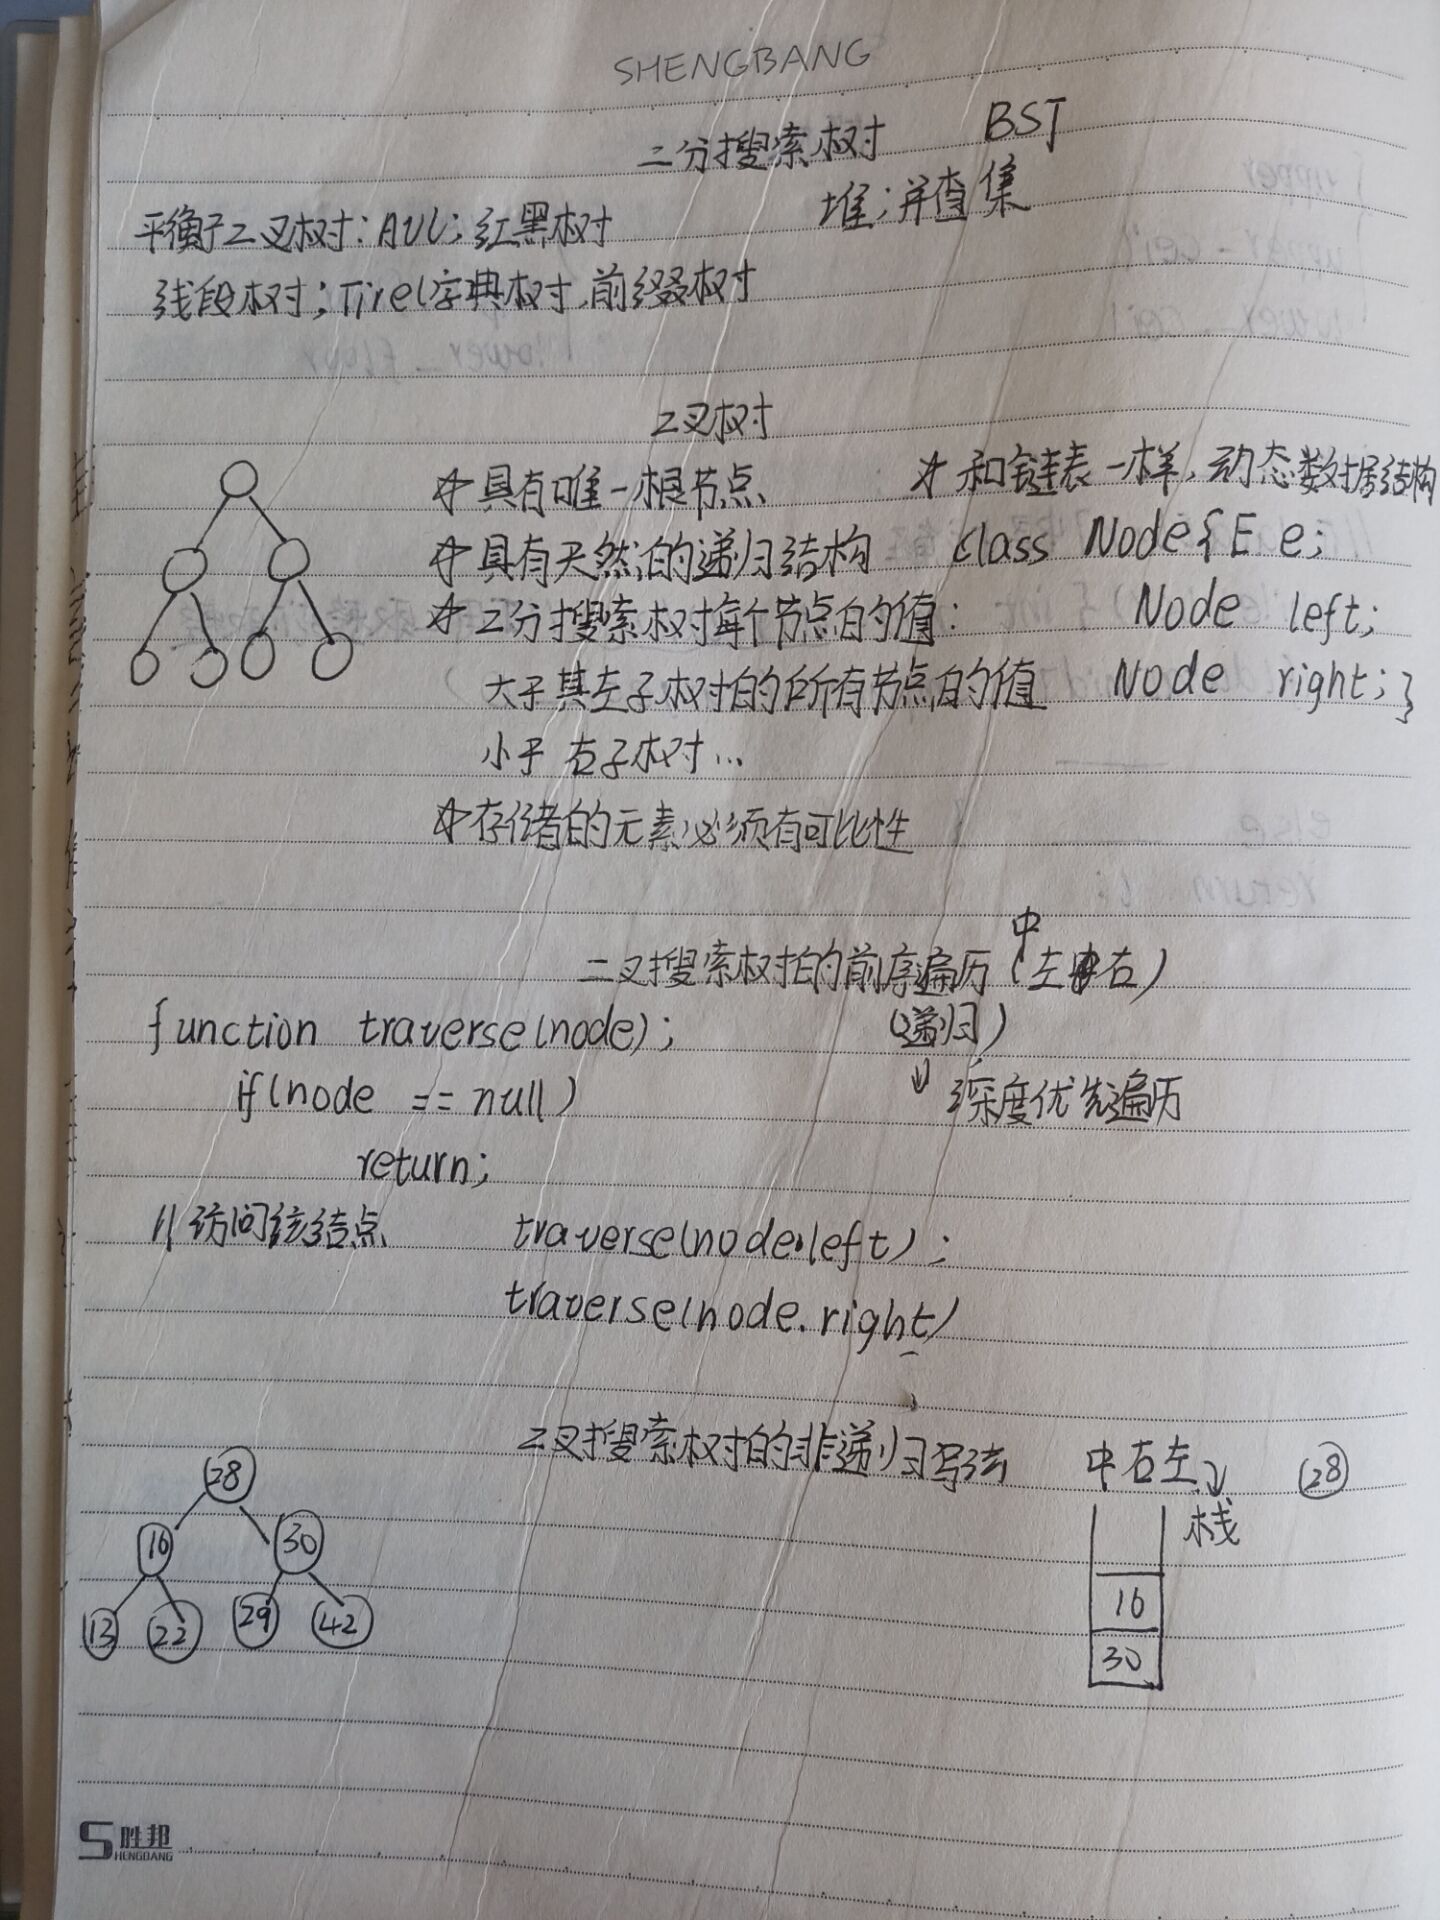 SHENGBANG
二分搜索树 BST
平衡二叉树：AVL；红黑树 堆；并查集
线段树；Tire(字典树,前缀树
二叉树
☆具有唯一根节点 ☆和链表一样，动态数据结构
☆具有天然的递归结构 class Node{E e;
☆二分搜索树每个节点的值： Node left;
大于其左子树的所有节点的值 Node right;}
小于右子树...
☆存储的元素必须有可比性
中
二叉搜索树的前序遍历（左右）
function traverse(node); (递归)
if(node == null) ↓深度优先遍历
return;
//访问该结点 traverse(node.left);
traverse(node.right)
二叉搜索树的非递归写法 中右左 28
28 栈
16 30 16
13 22 29 42 30
S胜邦
SHENGBANG